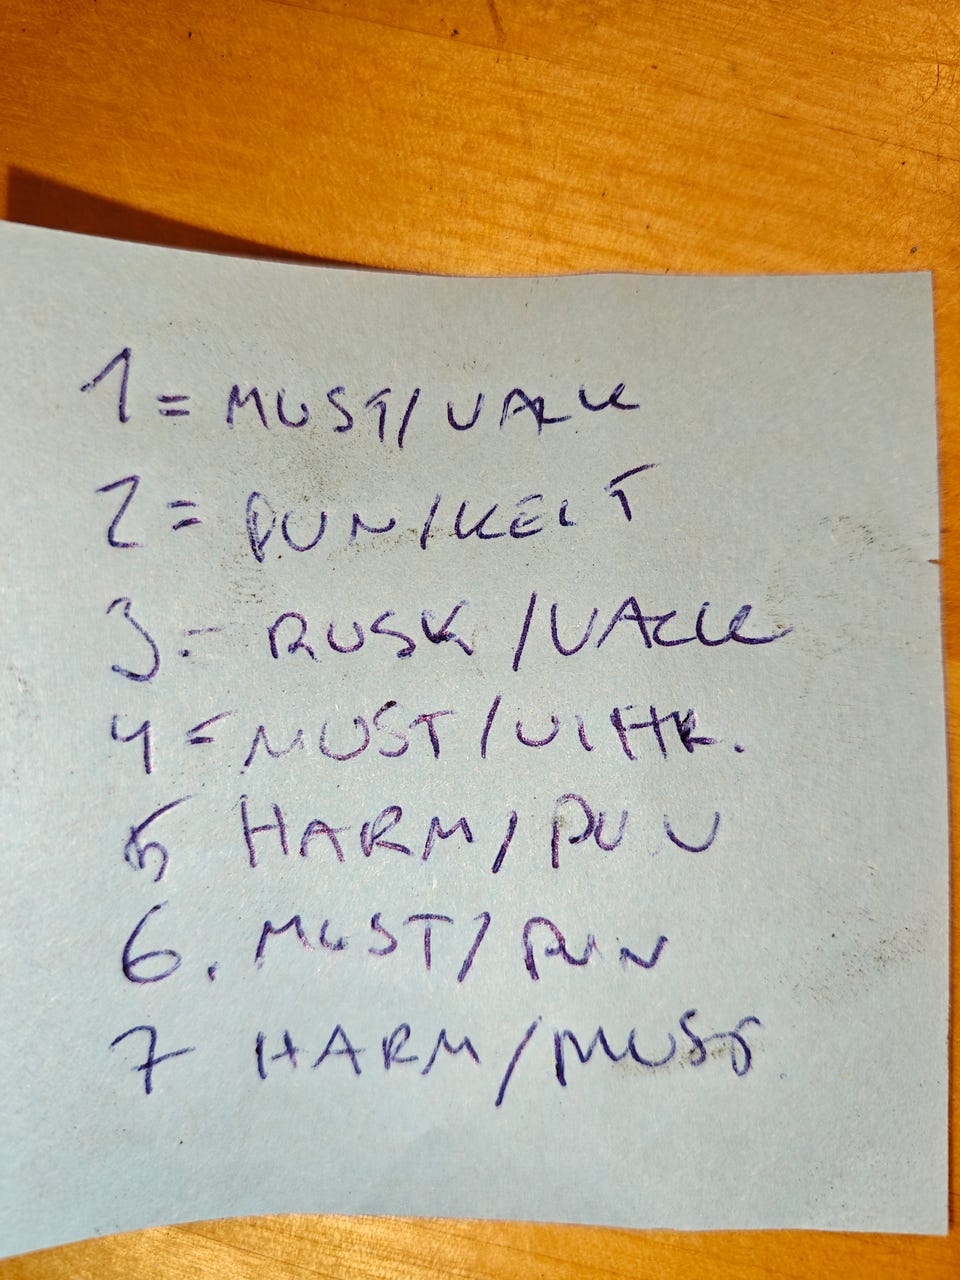 1 = MUST/VALK
2 = PUN/KELT
3 = RUSK/VALK
4 = MUST/VIHR.
5 HARM/PUN
6. MUST/PUN
7 HARM/MUST.